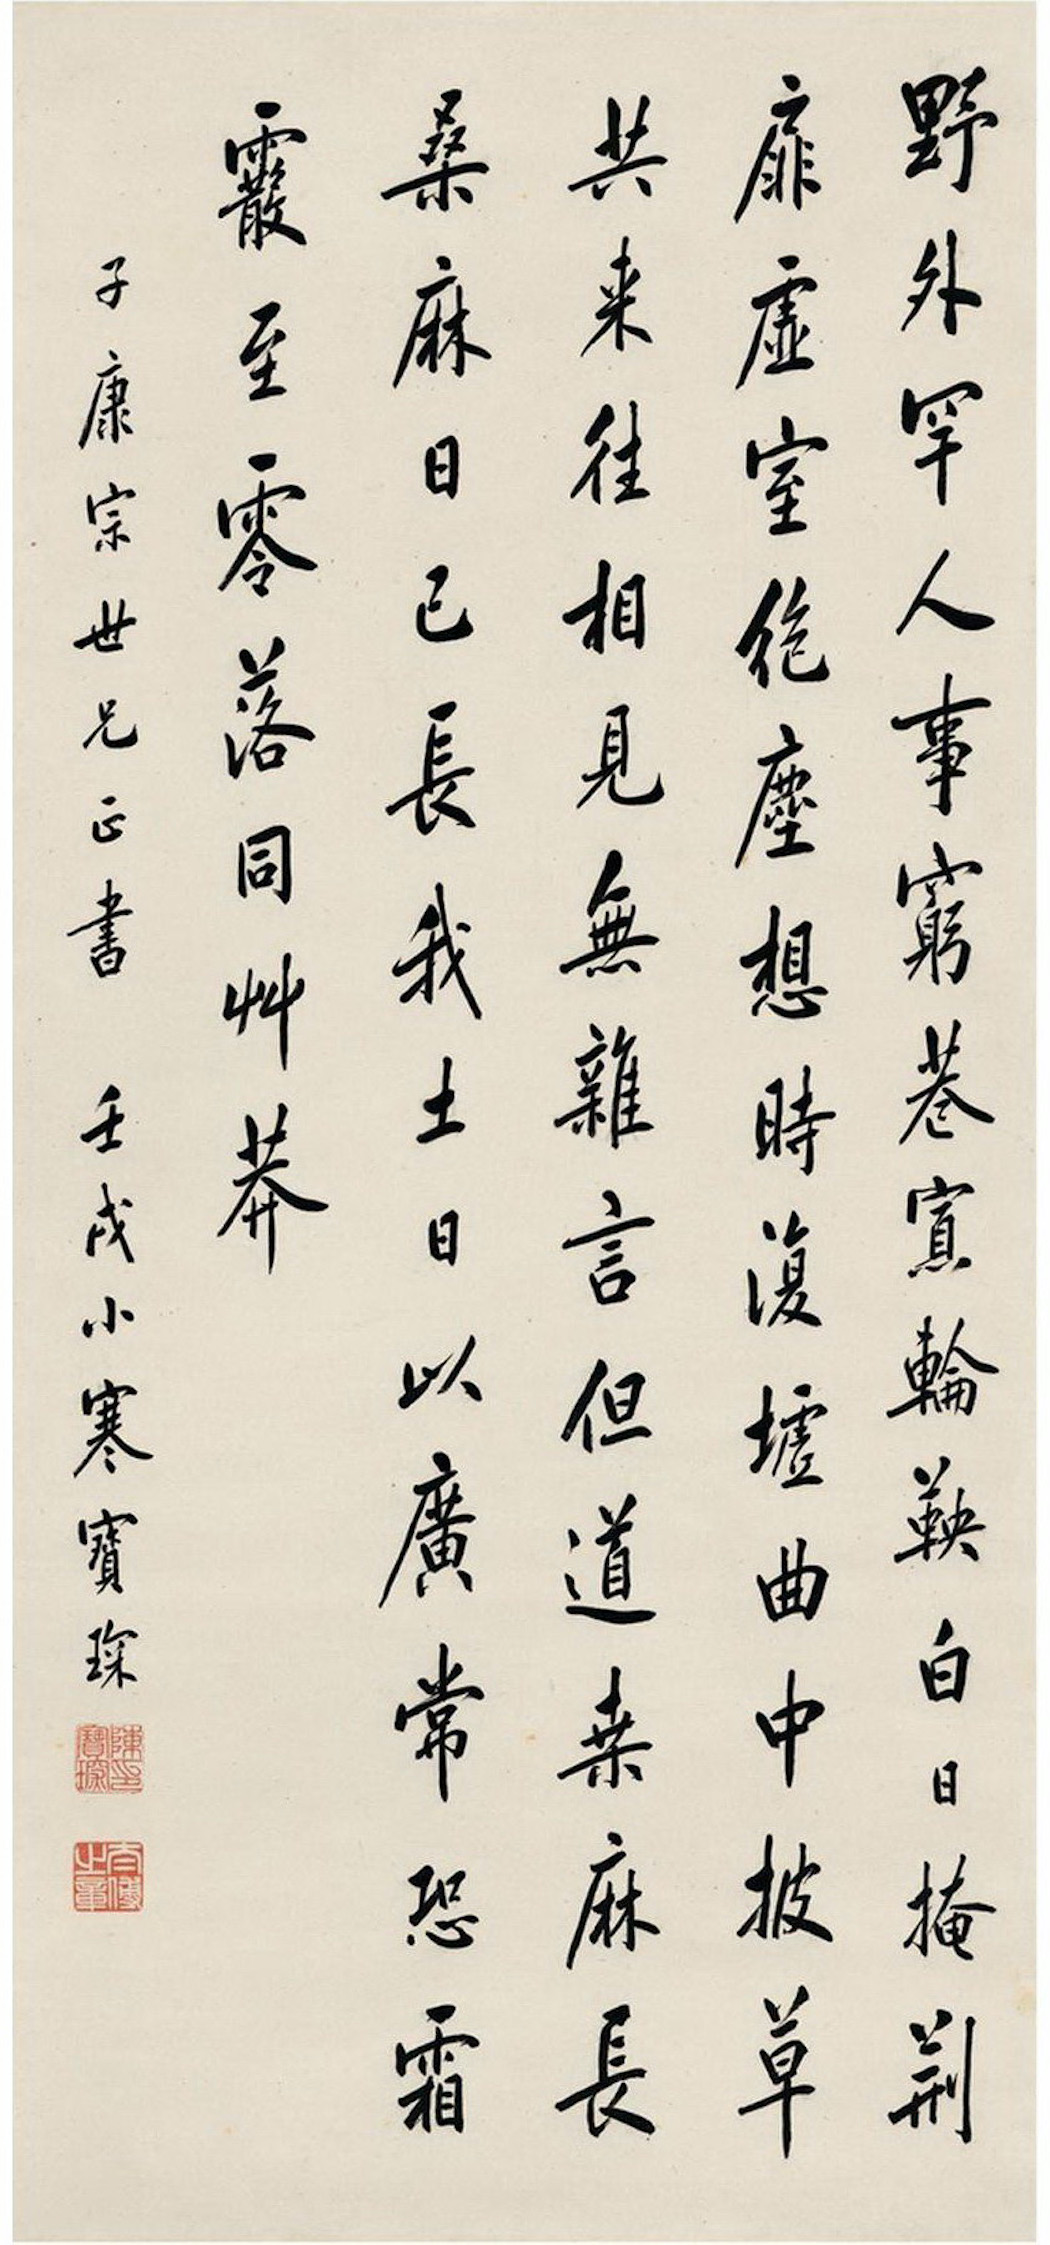 野外罕人事窮巷寡輪鞅白日掩荆
扉虛室絶塵想時復墟曲中披草
共来往相見無雜言但道桑麻長
桑麻日已長我土日以廣常恐霜
霰至零落同艸莽
子康宗世兄正書 壬戌小寒寶琛
陳寶琛印
太傅之章